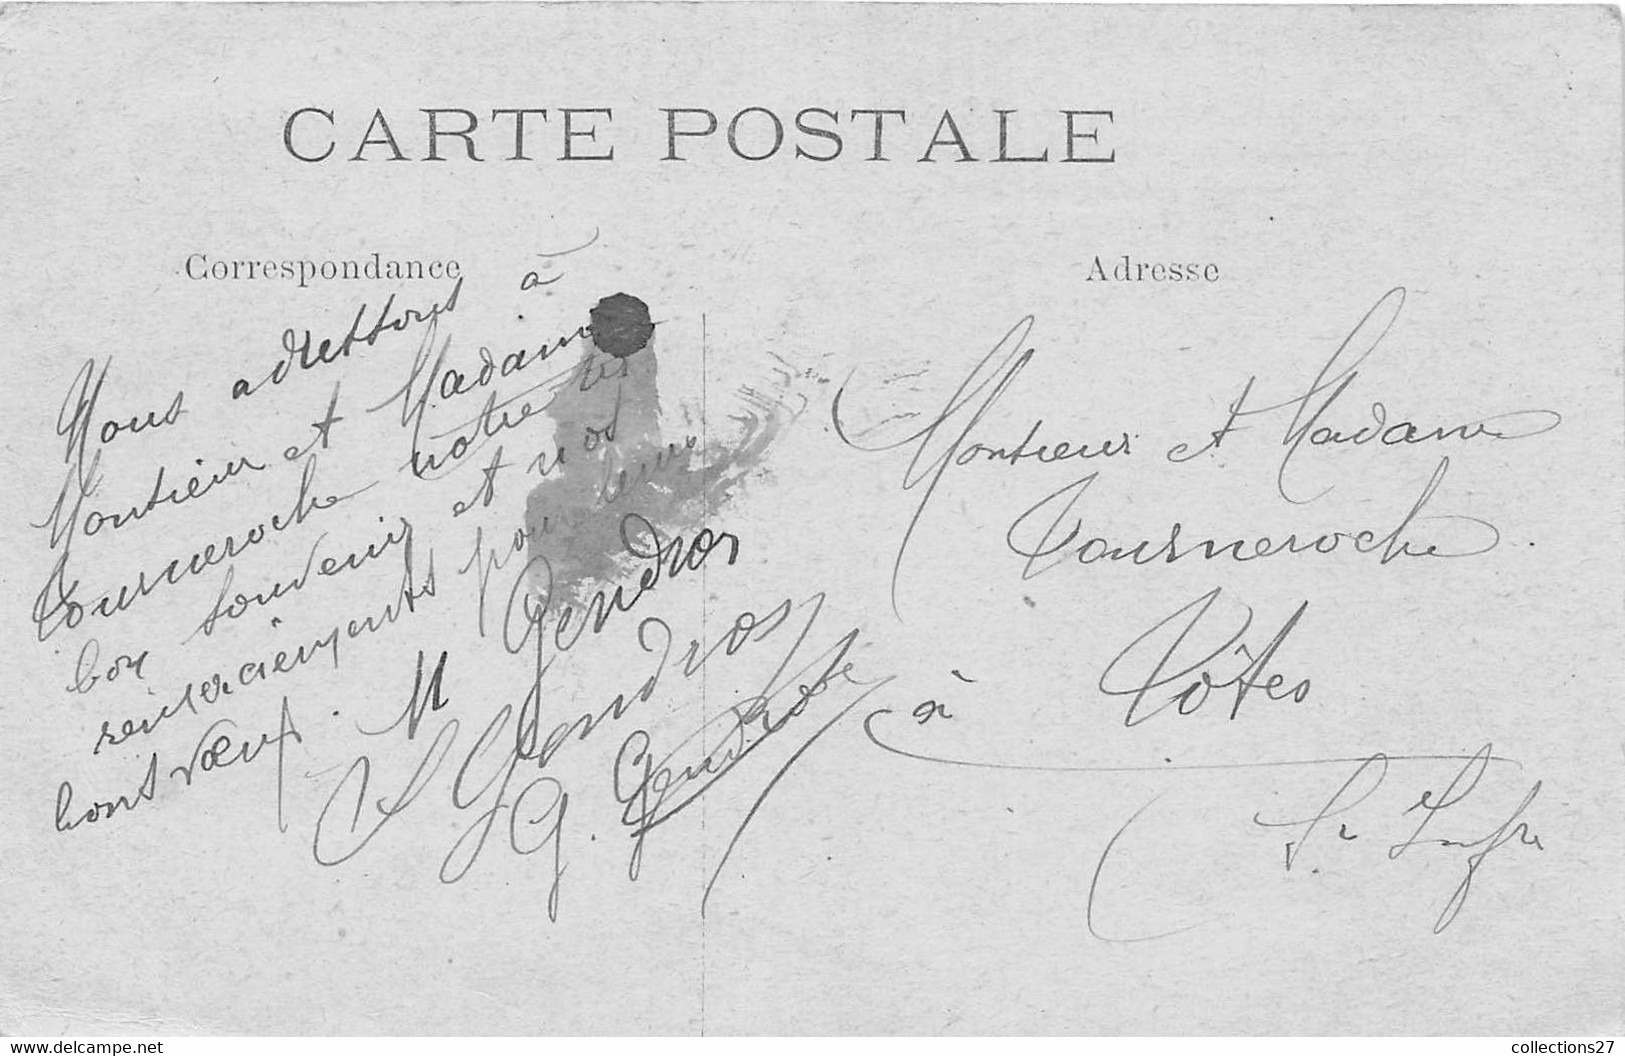 CARTE POSTALE
Correspondance
Nous adressons à
Monsieur et Madame
Tourneroche notre très
bon souvenir et nos
remerciements pour leurs
bons vœux. M Gendron
Gendron
G. Gendron
Adresse
Monsieur et Madame
Tourneroche
à Tôtes
Se Infre
www.delcampe.net
collections27